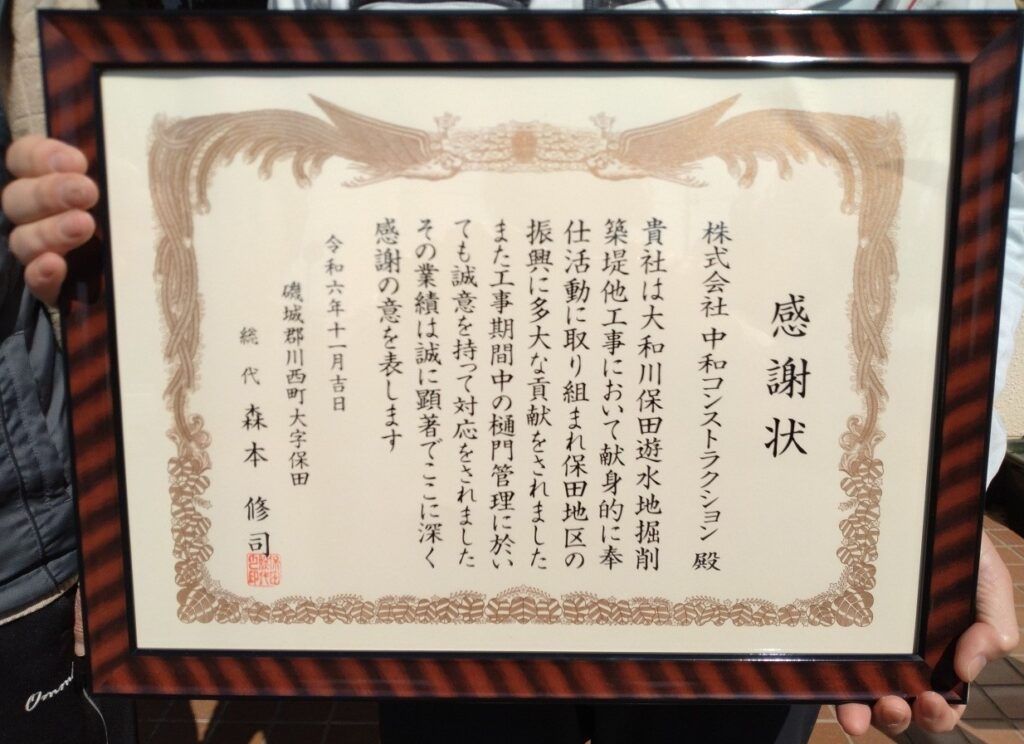 感謝状
株式会社 中和コンストラクション 殿
貴社は大和川保田遊水地掘削
築堤他工事において献身的に奉
仕活動に取り組まれ保田地区の
振興に多大な貢献をされました
また工事期間中の樋門管理に於い
ても誠意を持って対応をされました
その業績は誠に顕著でここに深く
感謝の意を表します
令和六年十一月吉日
磯城郡川西町大字保田
総代 森本 修司